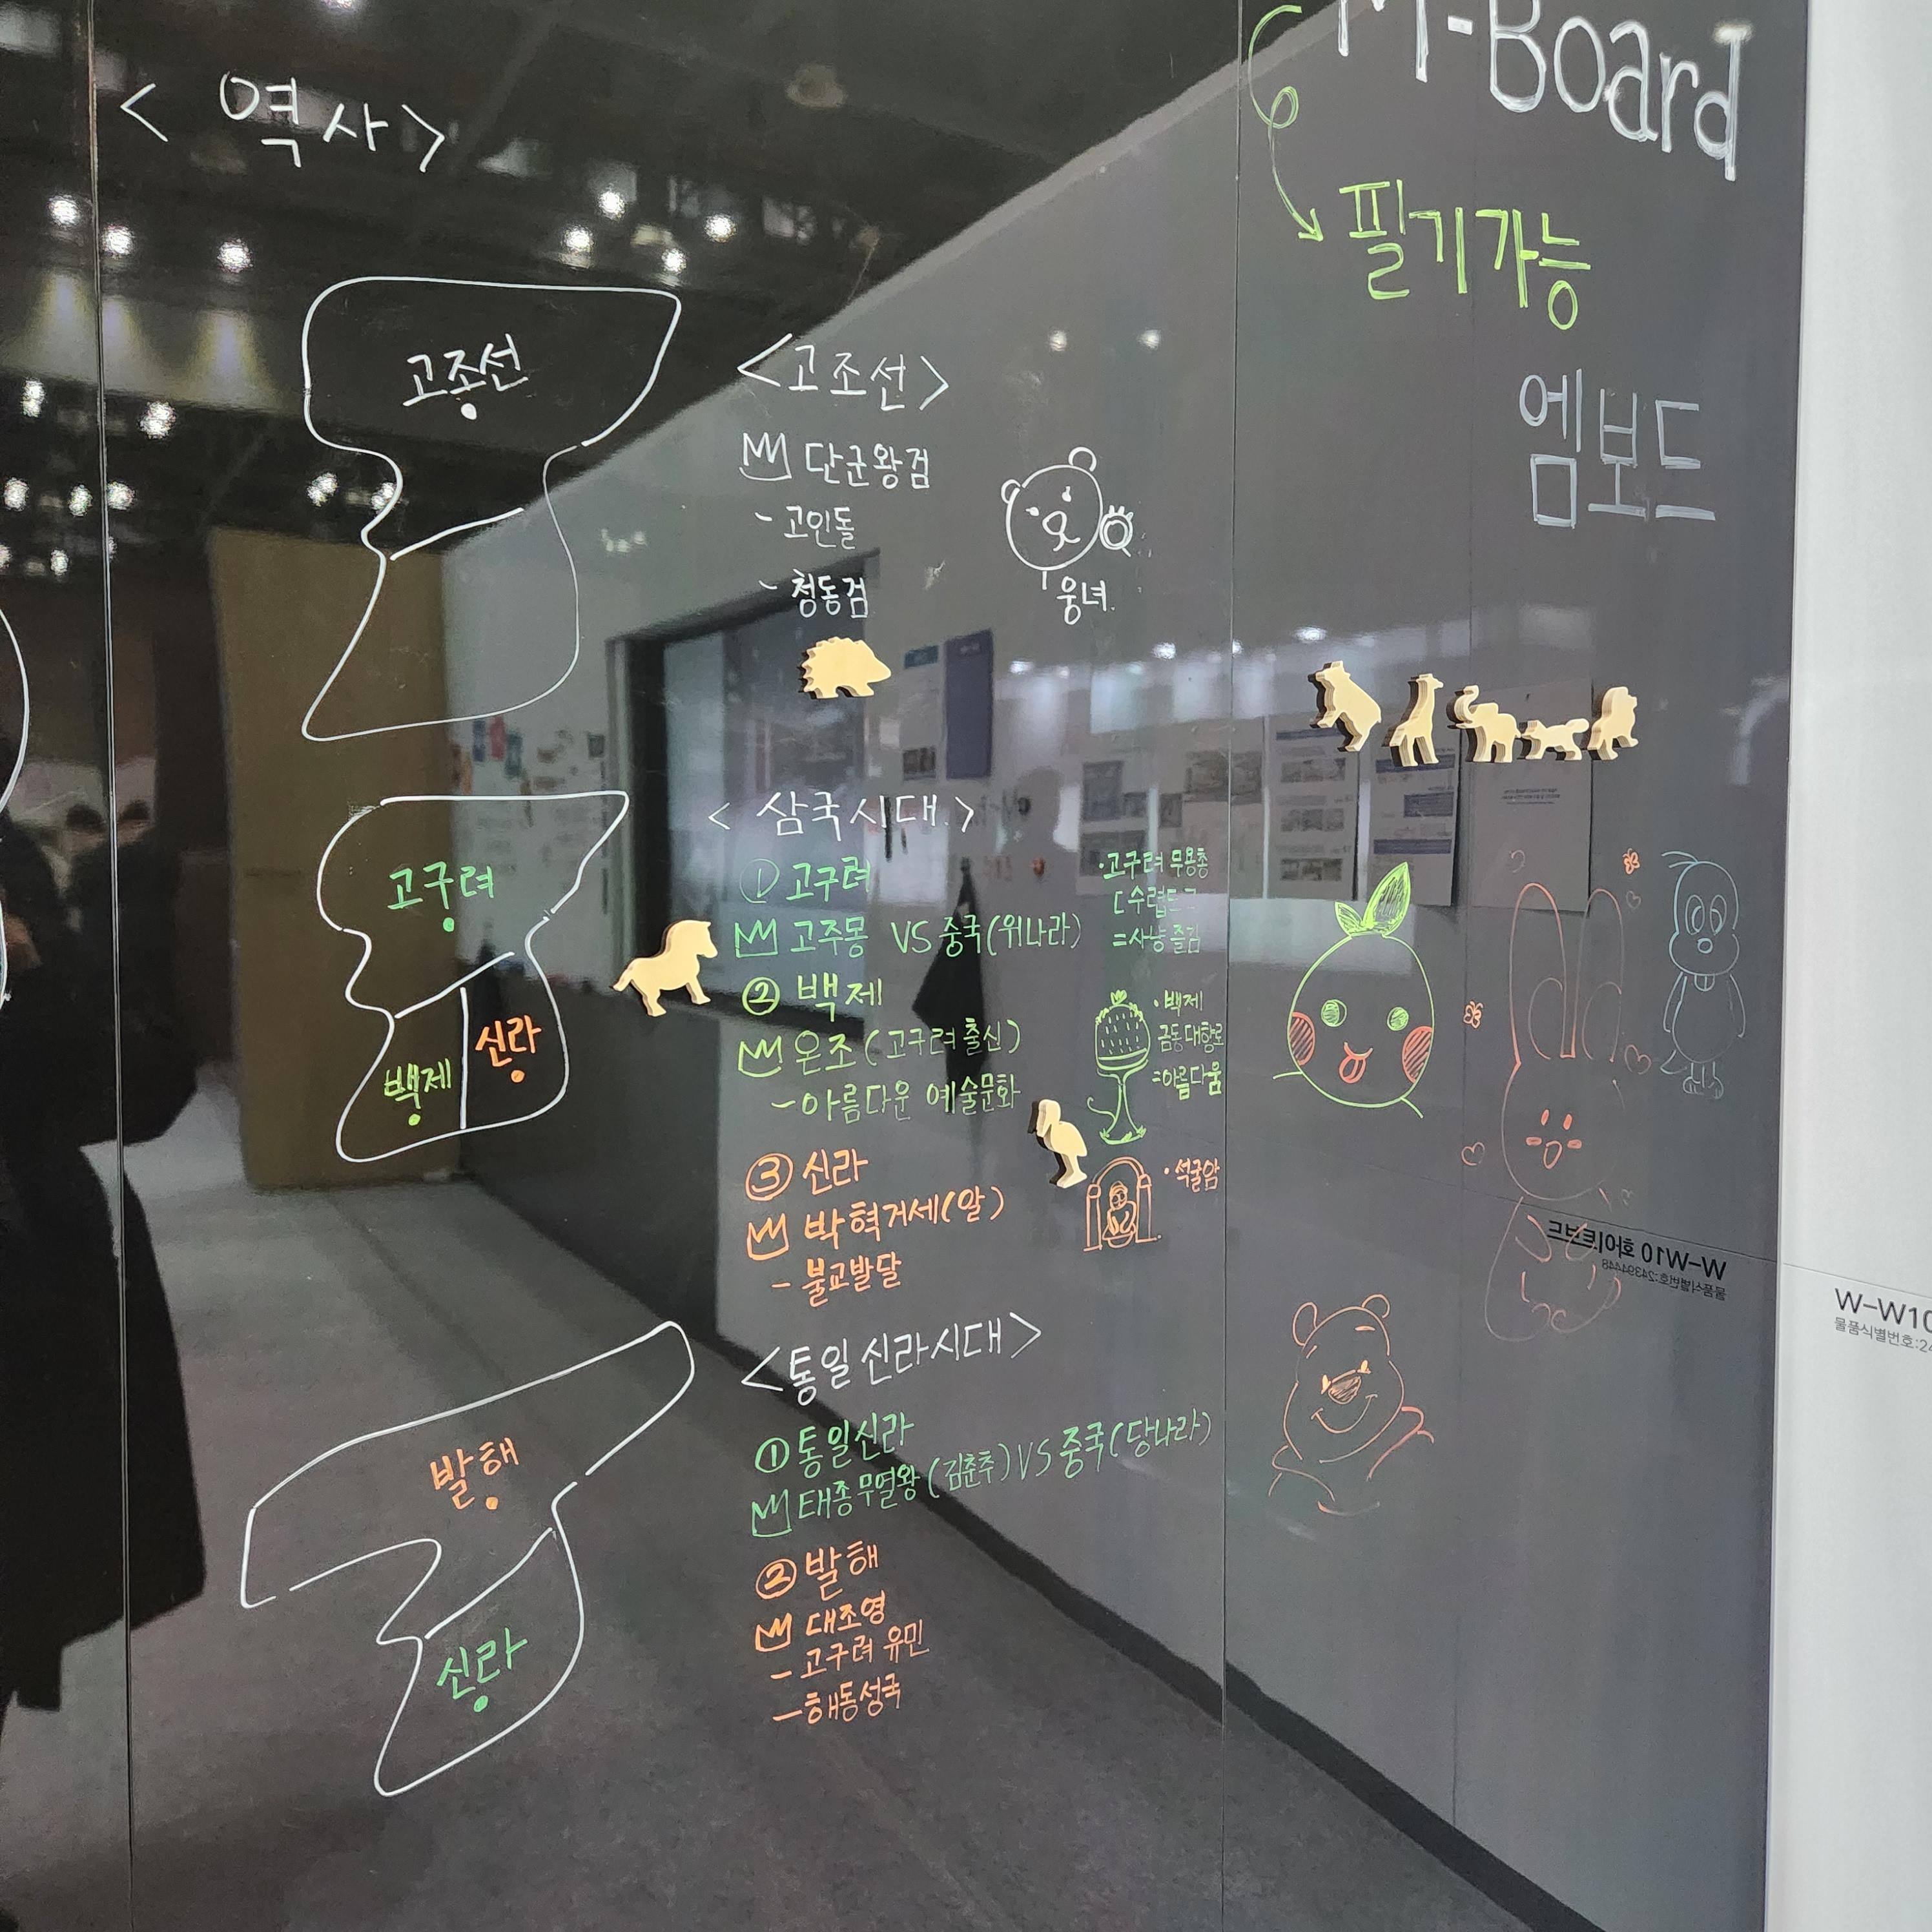 < 역사 >
고조선
<고조선>
단군왕검
- 고인돌
- 청동검
웅녀
고구려
백제
신라
< 삼국시대 >
① 고구려
고주몽 VS 중국(위나라)
② 백제
온조 (고구려 출신)
- 아름다운 예술문화
③ 신라
박혁거세(알)
- 불교발달
· 고구려 무용총
=사냥 즐김
· 백제
금동대향로
=아름다움
· 석굴암
발해
신라
<통일신라시대>
① 통일신라
태종무열왕 (김춘추) VS 중국(당나라)
② 발해
대조영
- 고구려 유민
- 해동성국
M-Board
필기가능
엠보드
W-W10 화이트보드
물품식별번호:24394448
W-W10
물품식별번호:24